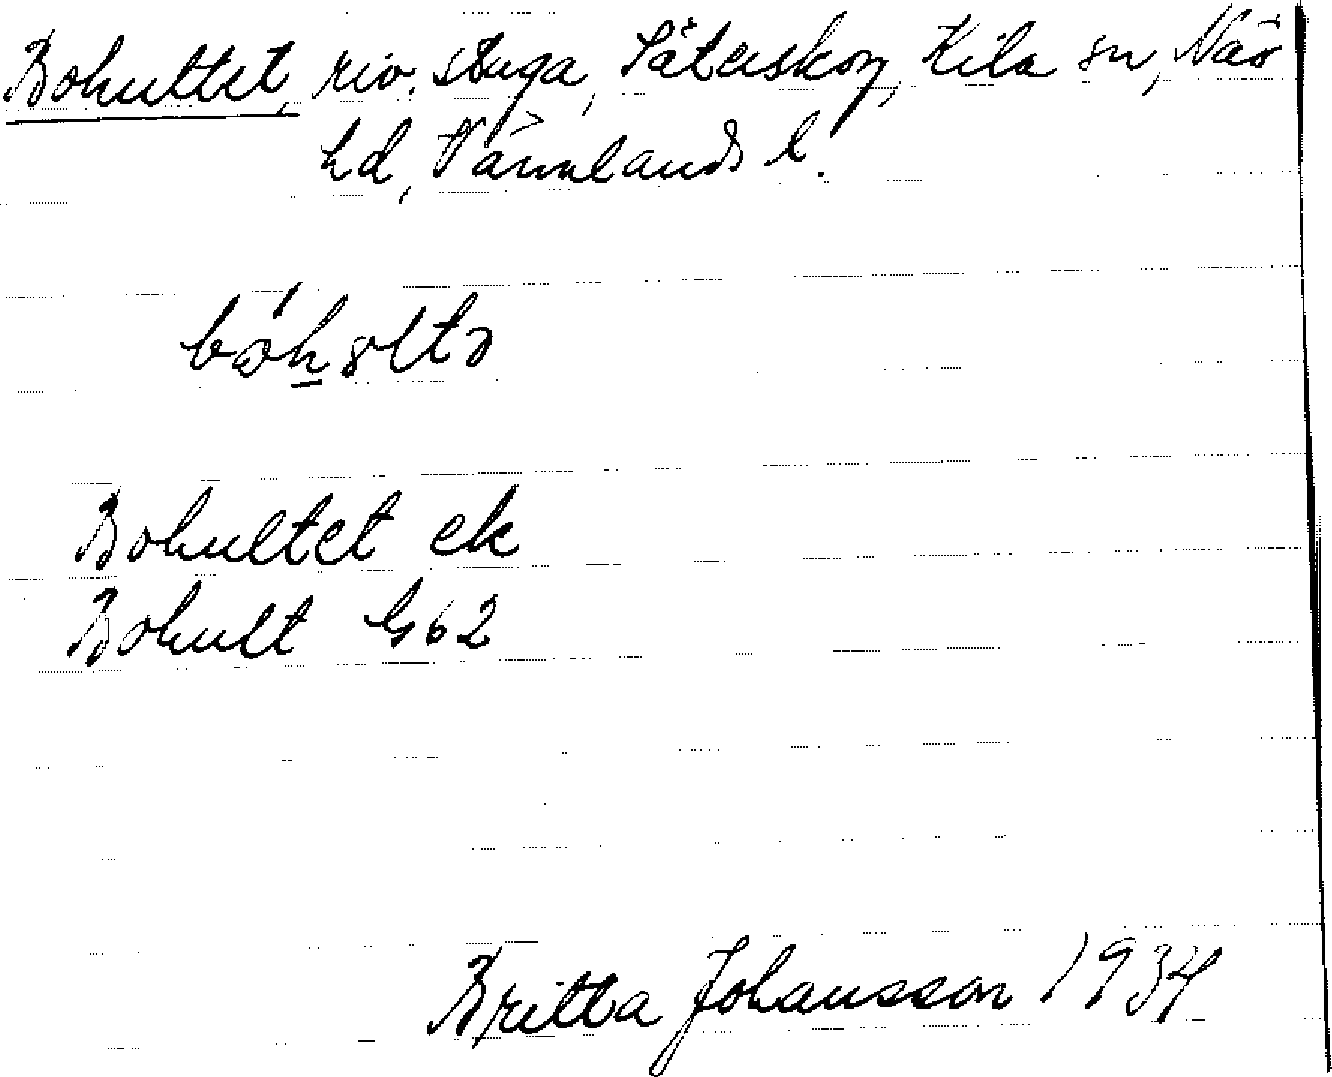 Bohultet, riv. stuga, Säterskog, Kila sn, Näs
hd, Värmlands l.
Bohultet ek
Bohult G62
Britta Johansson 1934